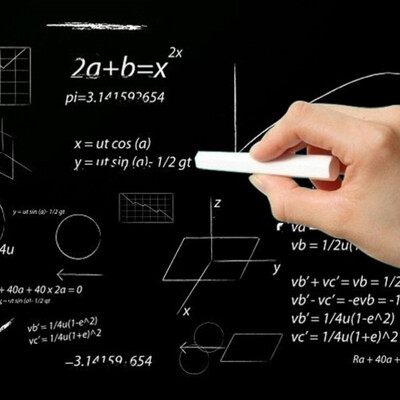 2a+b=x^2x
pi=3.141592654
x = ut cos (a)
y = ut sin (a)- 1/2 gt
y = ut sin (a)- 1/2 gt
z
y
x
4u
+ 40a + 40 x 2a = 0
= ut sin (a)- 1/2 gt
vb' = 1/4u(1-e^2)
vc' = 1/4u(1+e)^2
−3.14159,654
va =
vb = 1/2u(1
vb' + vc' = vb = 1/2
vb' - vc' = -evb = -1
vb' = 1/4u(1-e^2)
vc' = 1/4u(1+e)^2
Ra + 40a +